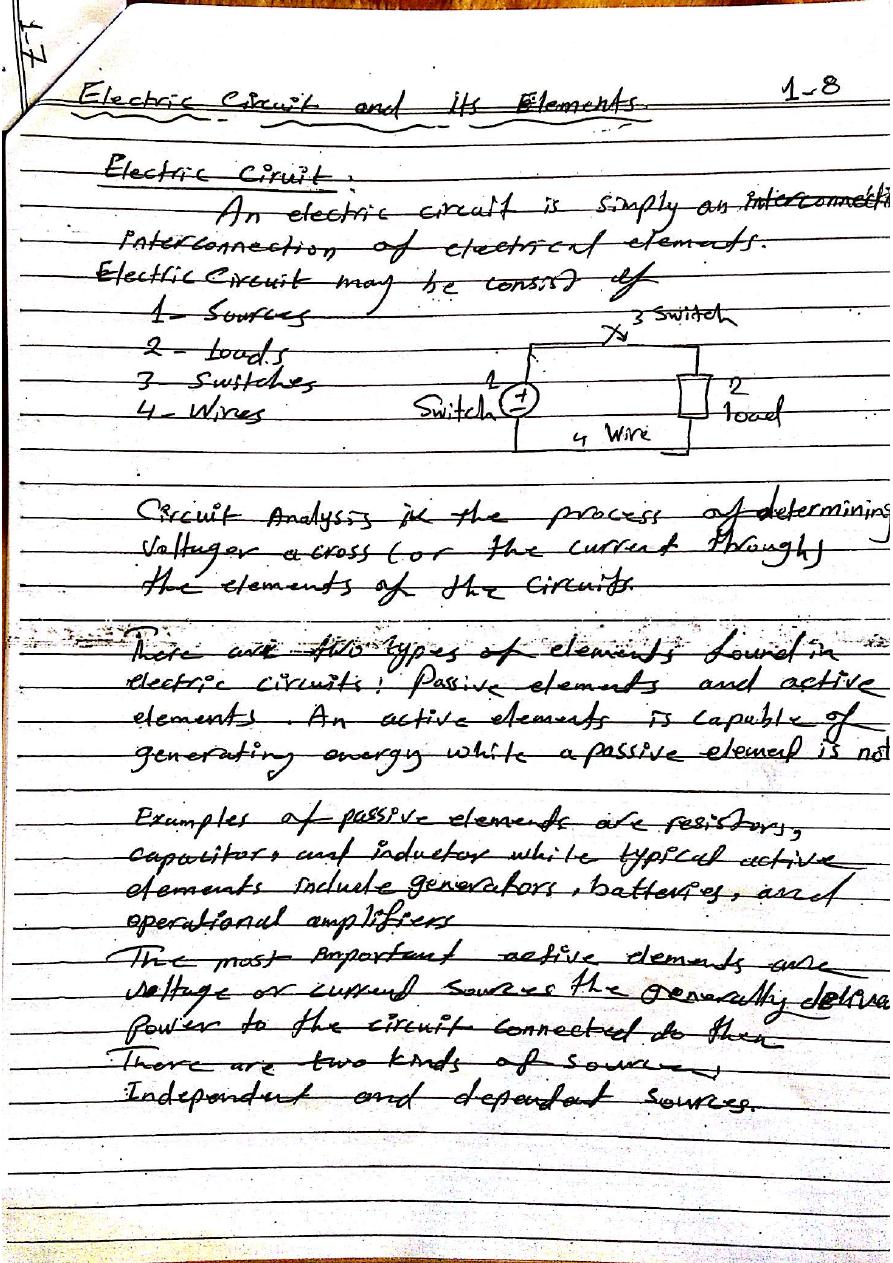 1-7
Electric Circuit and its Elements 1-8
Electric Ciruit:
An electric circuit is simply an interconnecti
interconnection of electrical elements.
Electric Circuit may be consist of
1- Sources
2- Loads
3- Switches
4- Wires
3 Switch
1
Switch
2
load
4 Wire
Circuit Analysis is the process of determining
Voltager across (or the current through)
the elements of the circuits.
There are two types of elements found in
electric circuits: Passive elements and active
elements. An active elements is capable of
generating energy while a passive elemed is not
Examples of passive elements are resistors,
capacitors and inductor while typical active
elements include generators, batteries, and
operational amplifiers
The most important active elements are
voltage or current sources the generally deliva
power to the circuit connected to then
There are two kinds of sources
Independent and dependent sources.